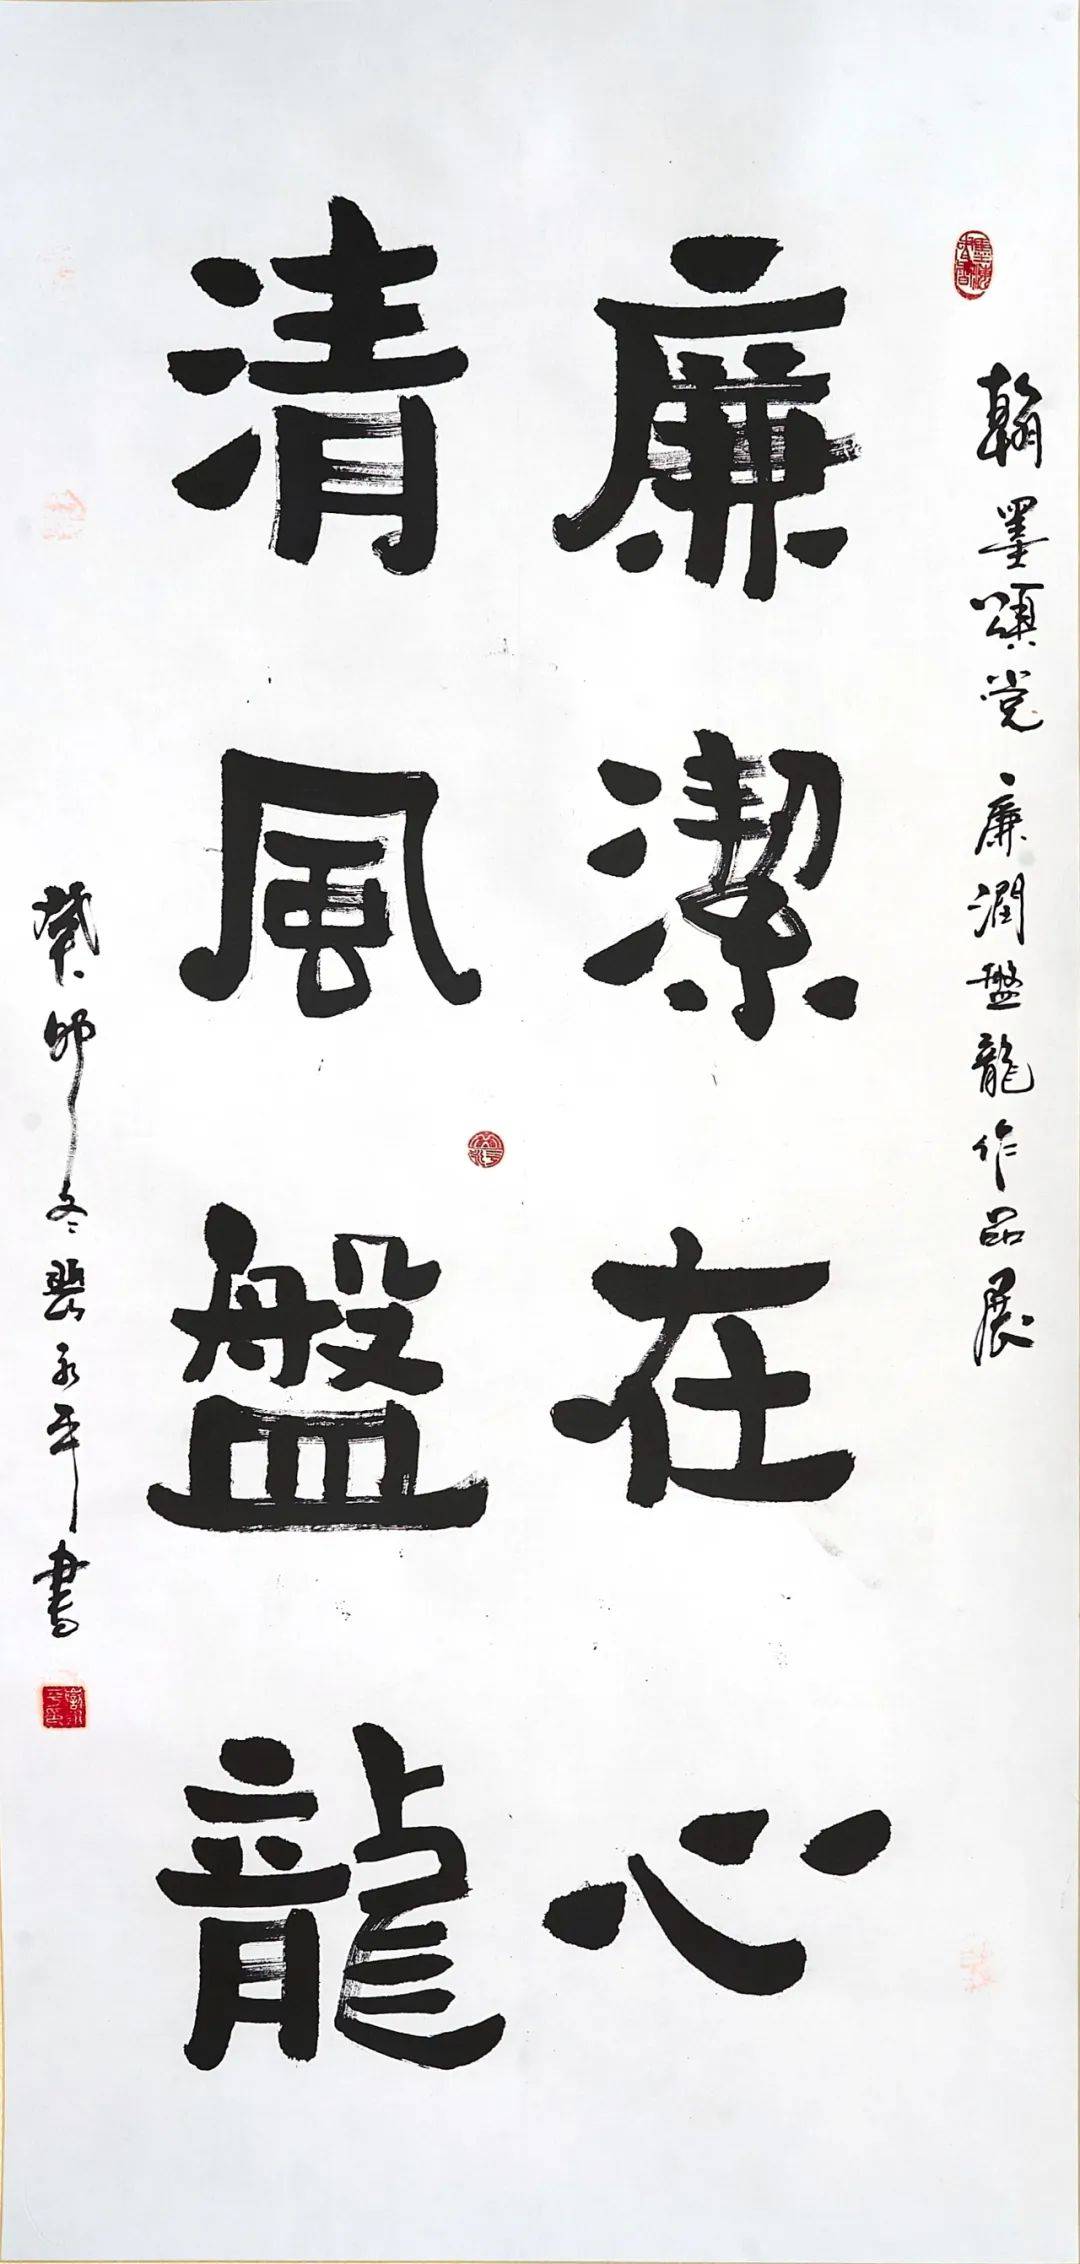 翰墨頌党 廉潤盤龍作品展
廉潔在心
清風盤龍
癸卯冬 永平書